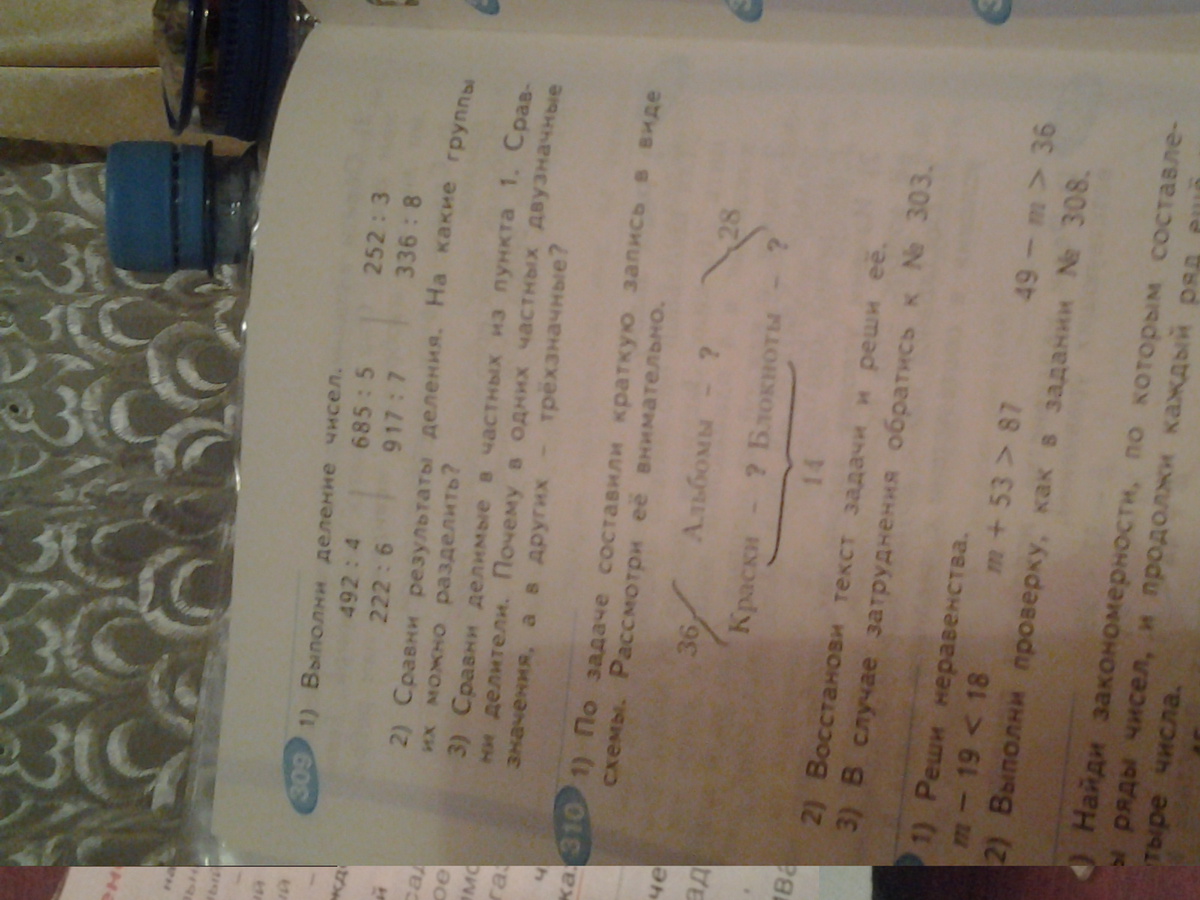 309 1) Выполни деление чисел.
492 : 4 685 : 5 252 : 3
222 : 6 917 : 7 336 : 8
2) Сравни результаты деления. На какие группы
их можно разделить?
3) Сравни делимые в частных из пункта 1. Срав-
ни делители. Почему в одних частных двузначные
значения, а в других – трёхзначные?
310 1) По задаче составили краткую запись в виде
схемы. Рассмотри её внимательно.
36 Альбомы – ? 28
Краски – ? Блокноты – ?
14
2) Восстанови текст задачи и реши её.
3) В случае затруднения обратись к № 303.
1) Реши неравенства.
m – 19 < 18 m + 53 > 87 49 – m > 36
2) Выполни проверку, как в задании № 308.
) Найди закономерности, по которым составле-
ы ряды чисел, и продолжи каждый ряд ещё
тыре числа.